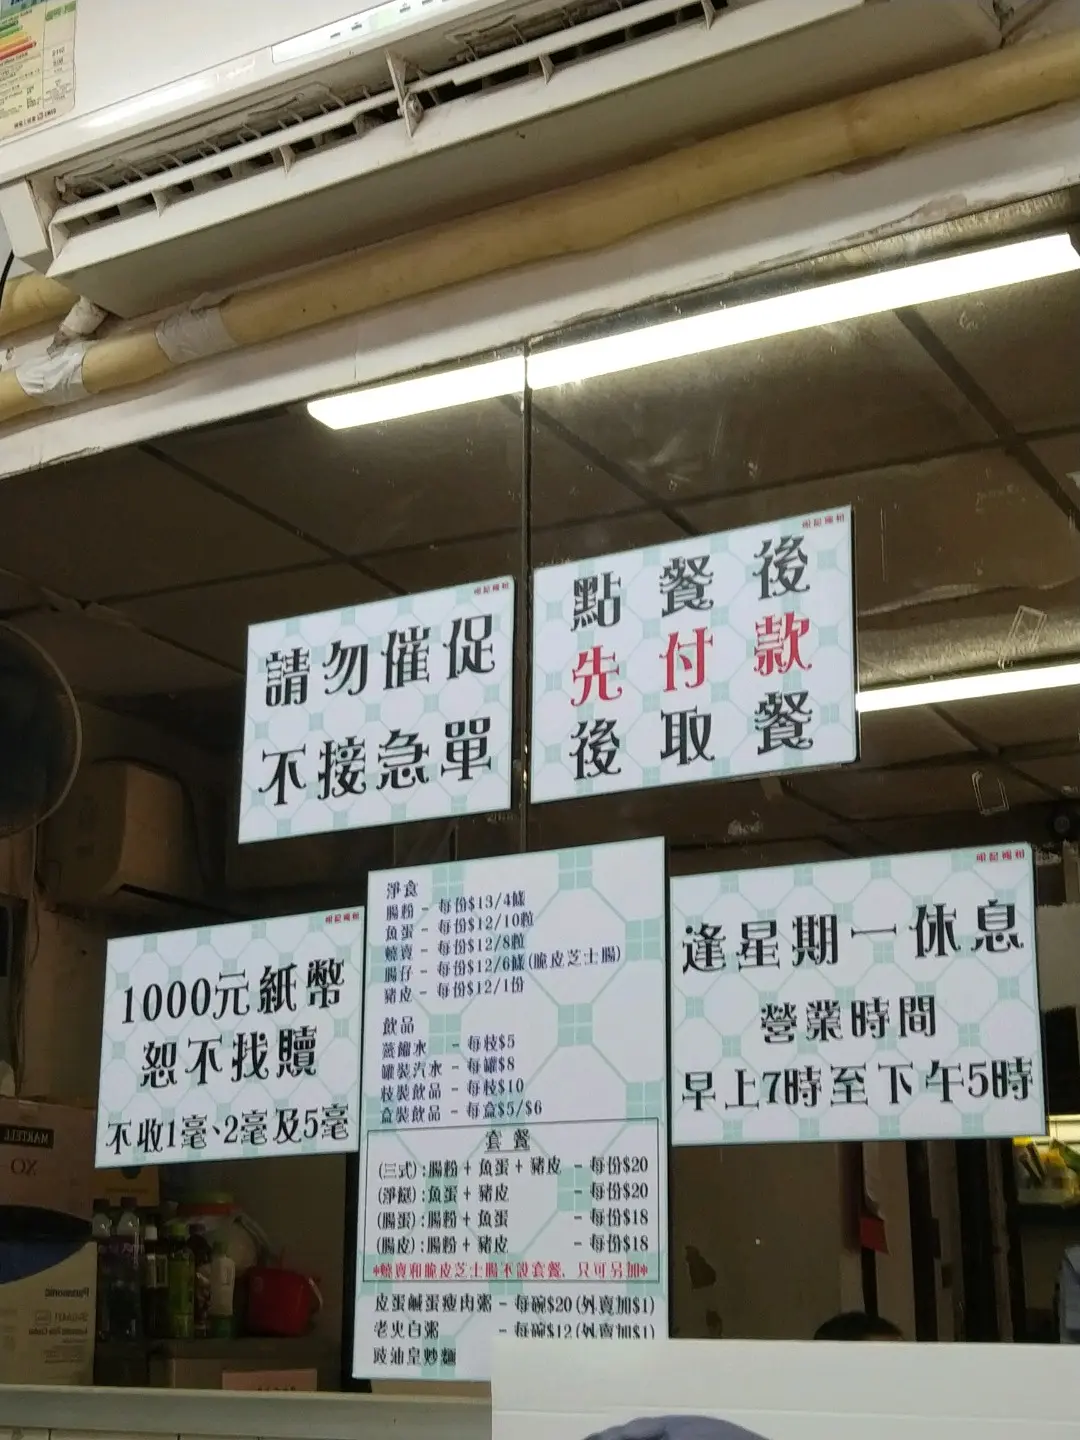 請勿催促
不接急單
點餐後
先付款
後取餐
1000元紙幣
恕不找贖
不收1毫、2毫及5毫
淨食
腸粉 - 每份$13/4條
魚蛋 - 每份$12/10粒
燒賣 - 每份$12/8粒
腸仔 - 每份$12/6條(脆皮芝士腸)
豬皮 - 每份$12/1份
飲品
蒸餾水 - 每枝$5
罐裝汽水 - 每罐$8
枝裝飲品 - 每枝$10
盒裝飲品 - 每盒$5/$6
套餐
(三式):腸粉 + 魚蛋 + 豬皮 - 每份$20
(淨餸):魚蛋 + 豬皮 - 每份$20
(腸蛋):腸粉 + 魚蛋 - 每份$18
(腸皮):腸粉 + 豬皮 - 每份$18
*燒賣和脆皮芝士腸不設套餐, 只可另加*
皮蛋鹹蛋瘦肉粥 - 每碗$20(外賣加$1)
老火白粥 - 每碗$12(外賣加$1)
豉油皇炒麵
逢星期一休息
營業時間
早上7時至下午5時
MARTELL
XO
Panasonic